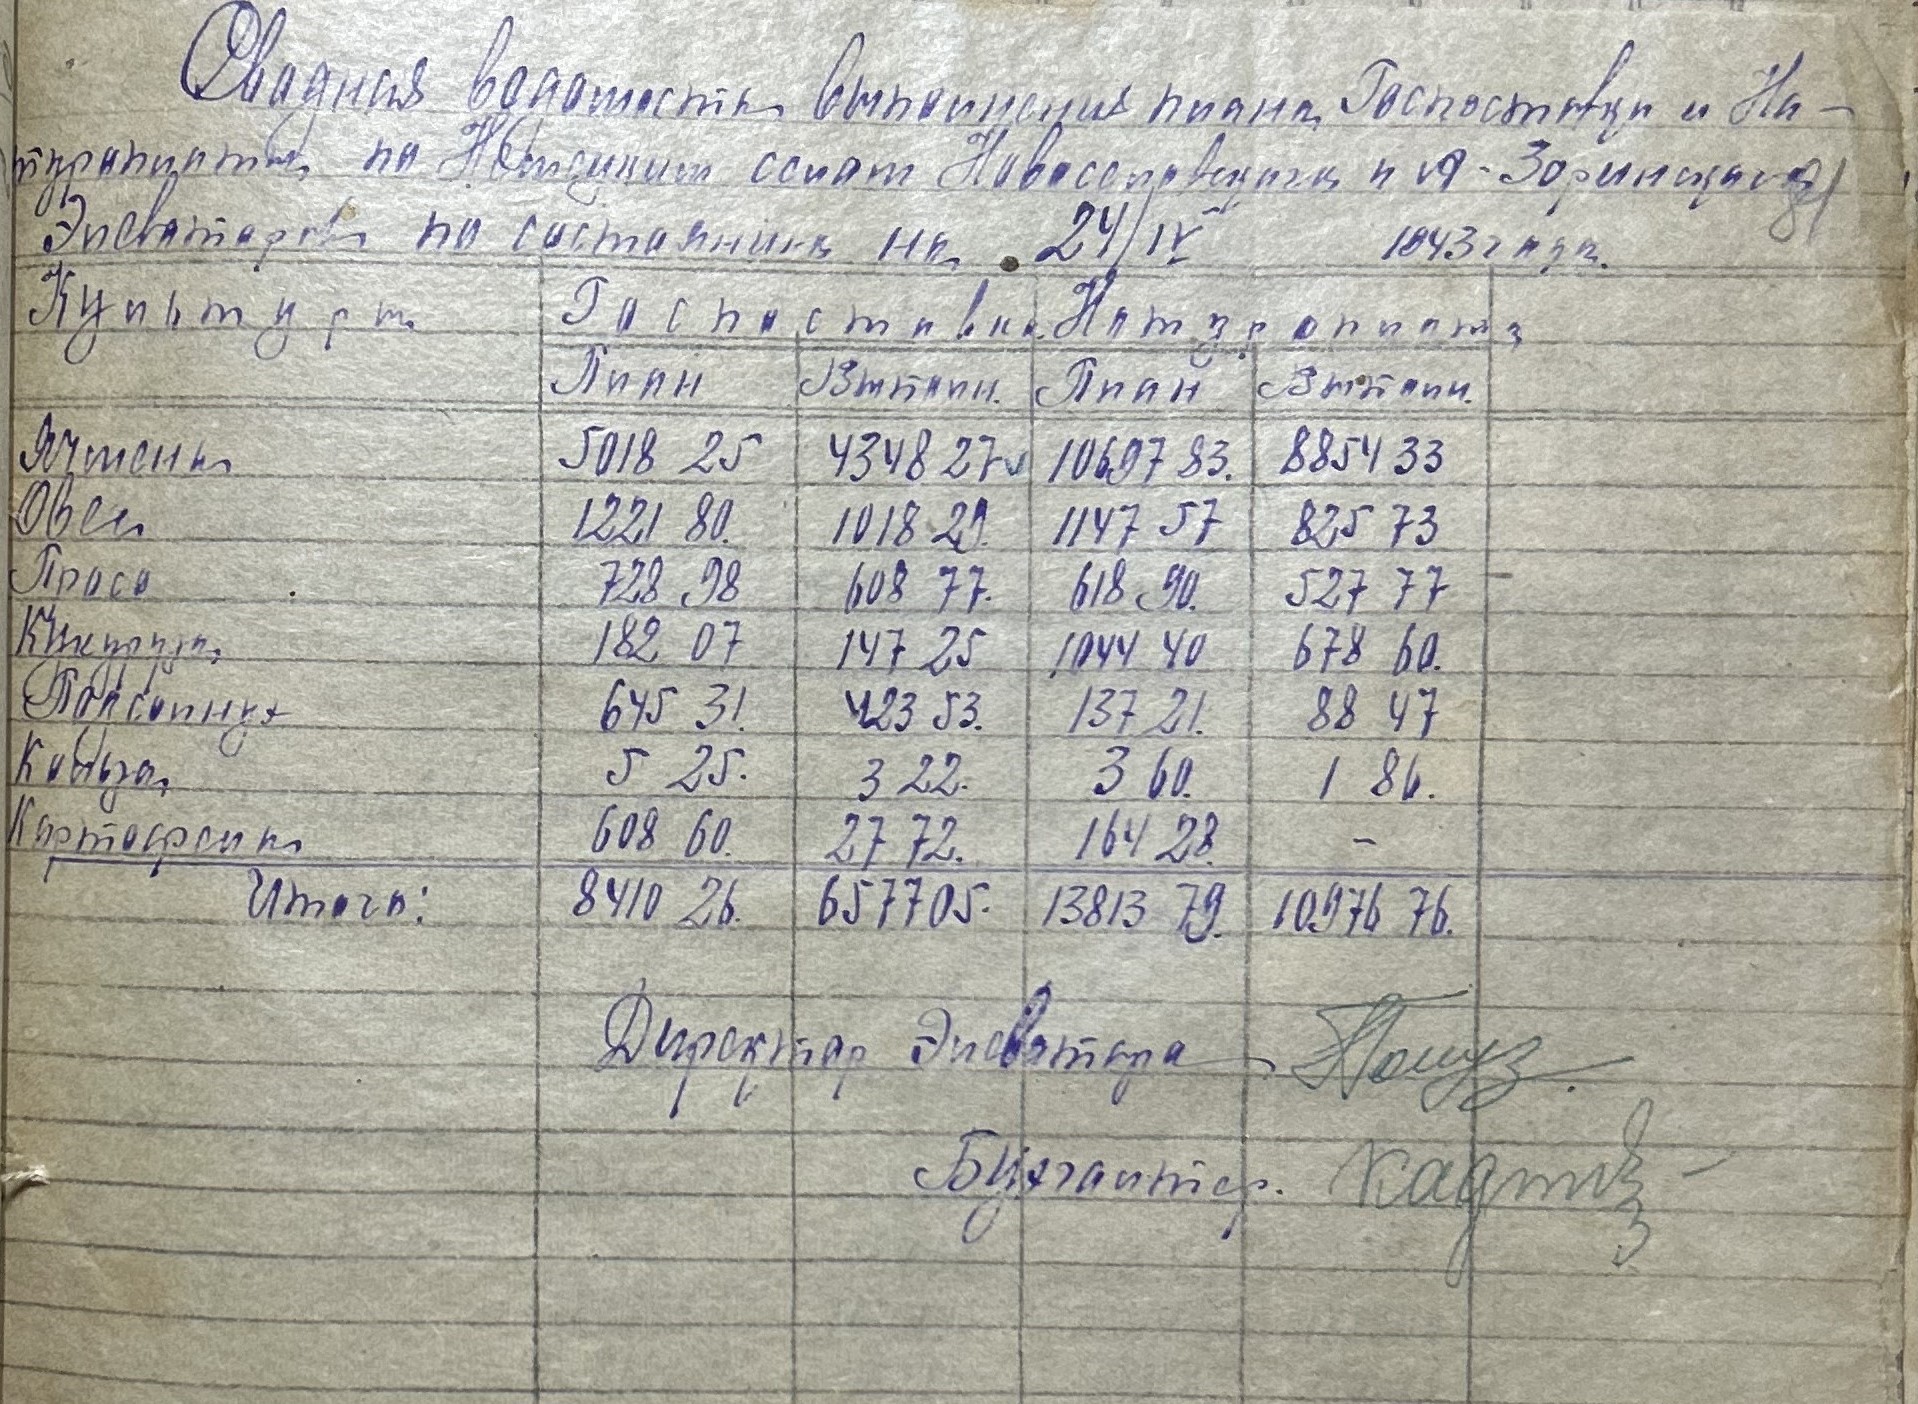 Сводная ведомость выполнения плана Госпоставки и На-
туроплаты по Немецким селам Новоселовского и Ф-Зоринского
Элеваторов по состоянию на 24/IV 1943 года.
Культуры Госпоставка Натуроплата
План Выполн. План Выполн.
Ячмень 5018 25 4348 27 10697 83. 8854 33
Овес 1221 80. 1018 29. 1147 57 825 73
Просо 728 98 608 77. 618 90. 527 77
Кукуруза 182 07 147 25 1044 40 678 60.
Подсолнух 645 31. 423 53. 137 21. 88 47
Кользa 5 25. 3 22. 3 60. 1 86.
Картофель 608 60. 27 72. 164 28. –
Итого: 8410 26. 6577 05. 13813 79. 10976 76.
Директор Элеватора
Бухгалтер.